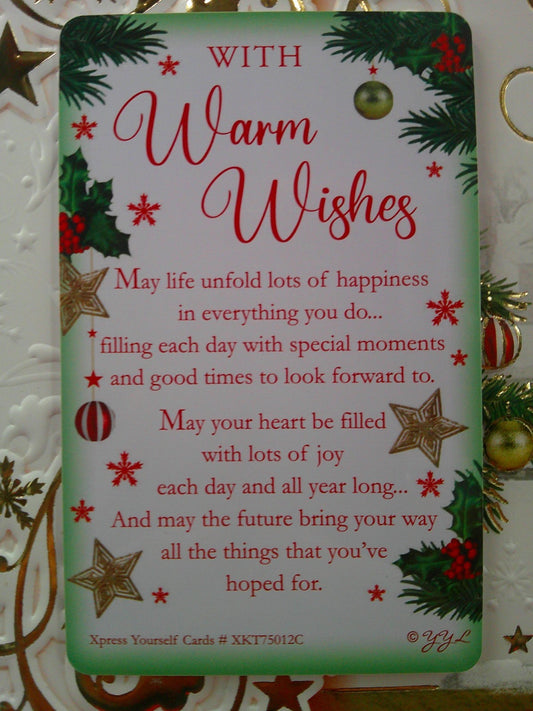 WITH
Warm
Wishes
May life unfold lots of happiness
in everything you do...
filling each day with special moments
and good times to look forward to.
May your heart be filled
with lots of joy
each day and all year long...
And may the future bring your way
all the things that you've
hoped for.
Xpress Yourself Cards # XKT75012C
© YYL